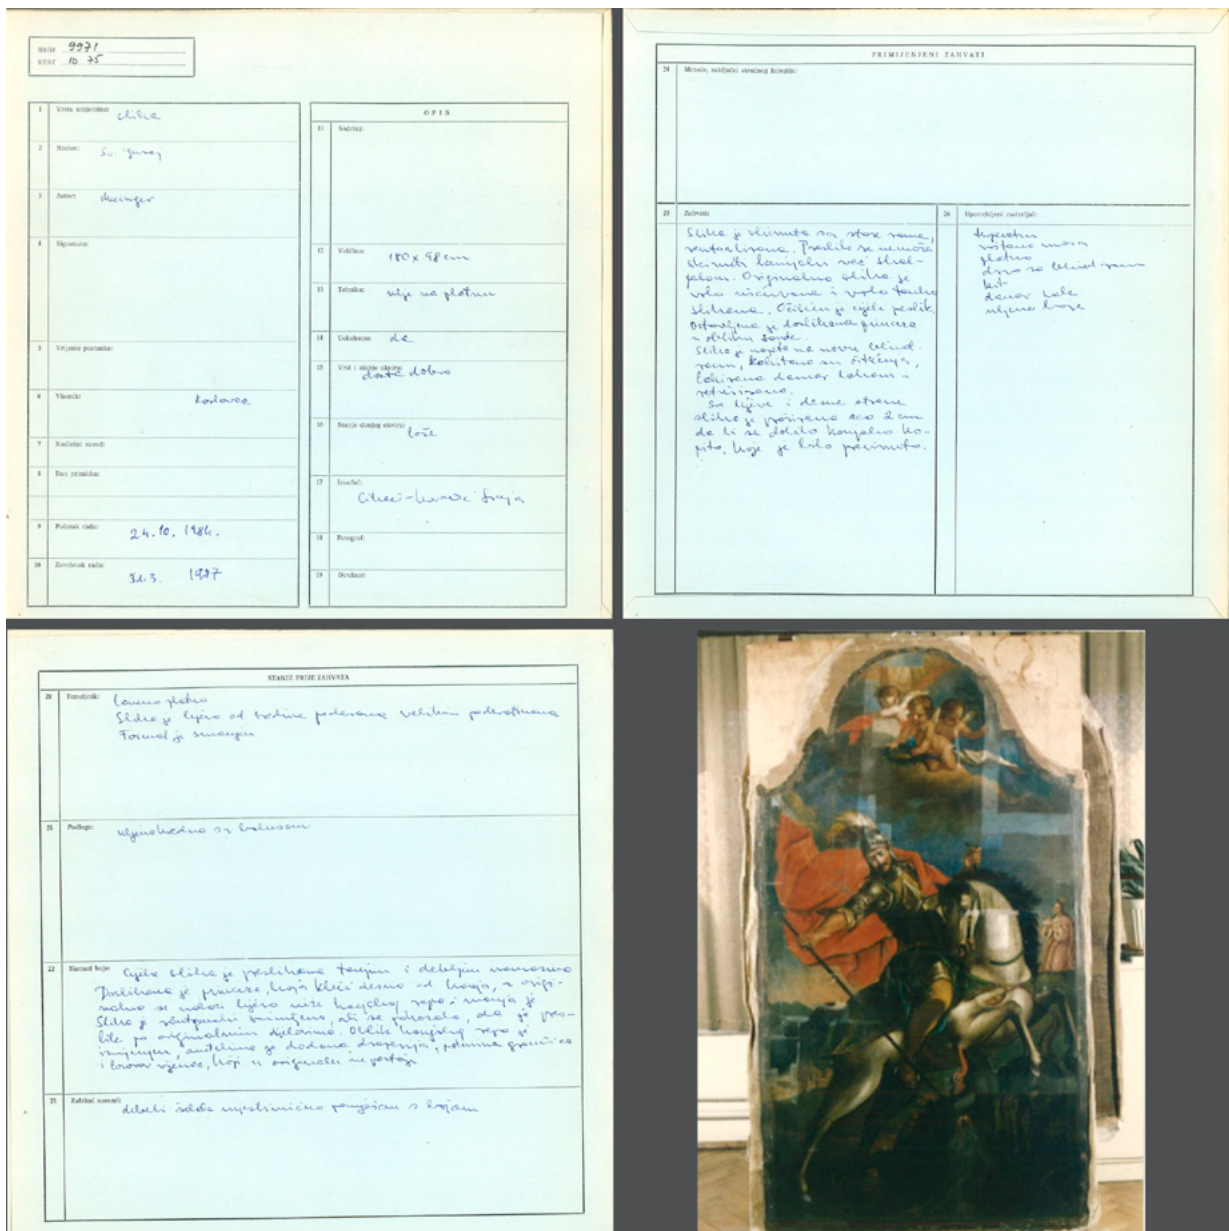 BROJ 9971
REST 10.75
1 Vrsta umjetnine: slika
2 Naslov: Sv. Juraj
3 Autor:
4 Signatura:
5 Vrijeme postanka:
6 Vlasnik: Karlovac
7 Nadležni zavod:
8 Dan primitka:
9 Početak rada: 24. 10. 1984.
10 Završetak rada: 31. 3. 1987
OPIS
11 Sadržaj:
12 Veličina: 180 x 98 cm
13 Tehnika: ulje na platnu
14 Uokvireno: da
15 Vrst i stanje okvira: dosta dobro
16 Stanje slijepog okvira: loše
17 Izradio:
18 Fotograf:
19 Direktor:
PRIMIJENJENI ZAHVATI
24 Metode, zaključci stručnog kolegija:
25 Zahvati:
Slika je skinuta sa stare rame,
rentoalirana. Preslik se nemože
skinuti kemijski već skal-
pelom. Originalna slika je
vrlo i vrlo tanko
slikana. Očišćen je cijeli preslik.
Ostavljena je doslikana princeza
u obliku sonde.
Slika je napeta na novu blind
ramu, kitana su oštećenja,
lakirana damar lakom i
retuširana.
Sa lijeve i desne strane
slika je proširena sa 2 cm
da bi se dobilo konjsko ko-
pito, koje je bilo
26 Upotrebljeni materijali:
voštana masa
platno
drvo za blind ramu
kit
damar lak
uljene boje
STANJE PRIJE ZAHVATA
20 Temeljnik: laneno platno
Slika je lijevo od sredine poderana velikim
Format je smanjen
21 Podloga: sa bolusom
22 Namaz boje: Cijela slika je preslikana tanjim i debljim namazima
Doslikana je princeza, koja kleči desno od konja, a origi-
nalno se nalazi lijevo niže konjskog repa i manja je.
Slika je ali se pokazalo, da je pres-
lik po originalnim dijelovima. Oblik konjskog repa je
izmijenjen, anđelima je dodana draperija, palmina grančica
i lovorov vijenac, koji u originalu ne postoje
23 Zaštitni namazi: debeli mjestimično pomiješan s bojom